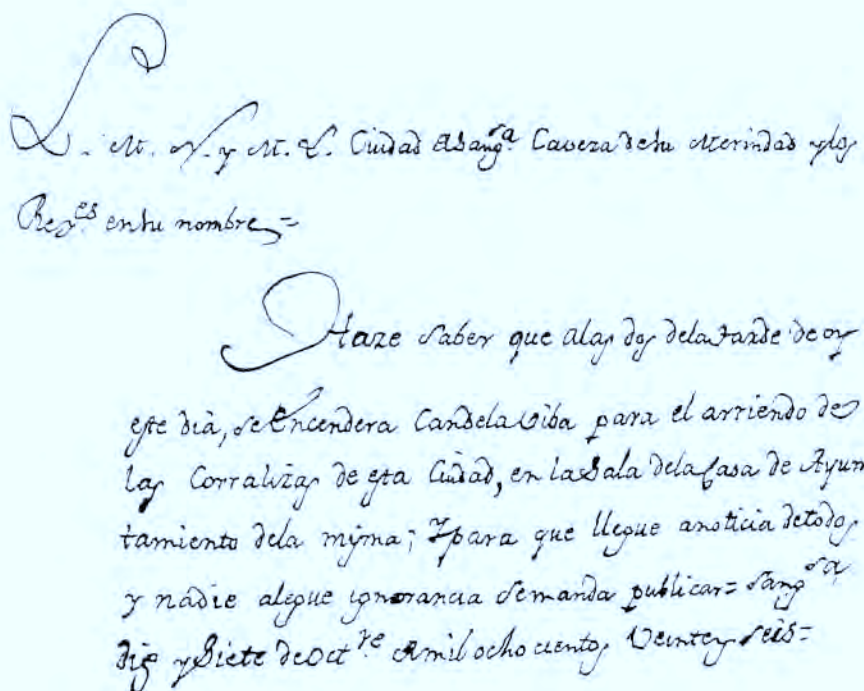 L. M. N. y M. L. Ciudad de Sang.sa Caveza de su Merindad y los
Rex.es en su nombre =
Haze saber que alas dos dela tarde de oy
este dià, se encendera Candela viba para el arriendo de
las Corralizas de esta Ciudad, en la Sala dela Casa de Ayun
tamiento dela misma; Y para que llegue anoticia de todos
y nadie alegue ignorancia se manda publicar = Sang.sa
diez y Siete de Oct.re de mil ocho cientos Veinte y seis =